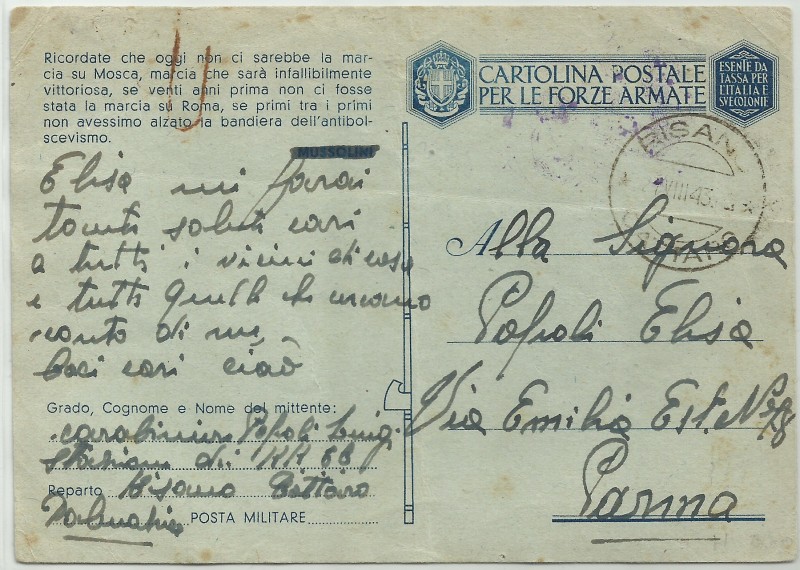 Ricordate che oggi non ci sarebbe la mar-
cia su Mosca, marcia che sarà infallibilmente
vittoriosa, se venti anni prima non ci fosse
stata la marcia su Roma, se primi tra i primi
non avessimo alzato la bandiera dell'antibol-
scevismo.
MUSSOLINI
CARTOLINA POSTALE
PER LE FORZE ARMATE
ESENTE DA
TASSA PER
L'ITALIA E
SUE COLONIE
RISANO
CATTARO
VIII 43
Elisa mi farai
tanti saluti cari
a tutti i vicini di casa
e tutti quelli che
conto di me,
baci cari ciaò
Alla Signora
Popoli Elisa
Via Emilia Est. No
Parma
Grado, Cognome e Nome del mittente:
carabiniere Popoli Luigi
stazione di RR CC
Reparto Risano Cattaro
Dalmazia POSTA MILITARE